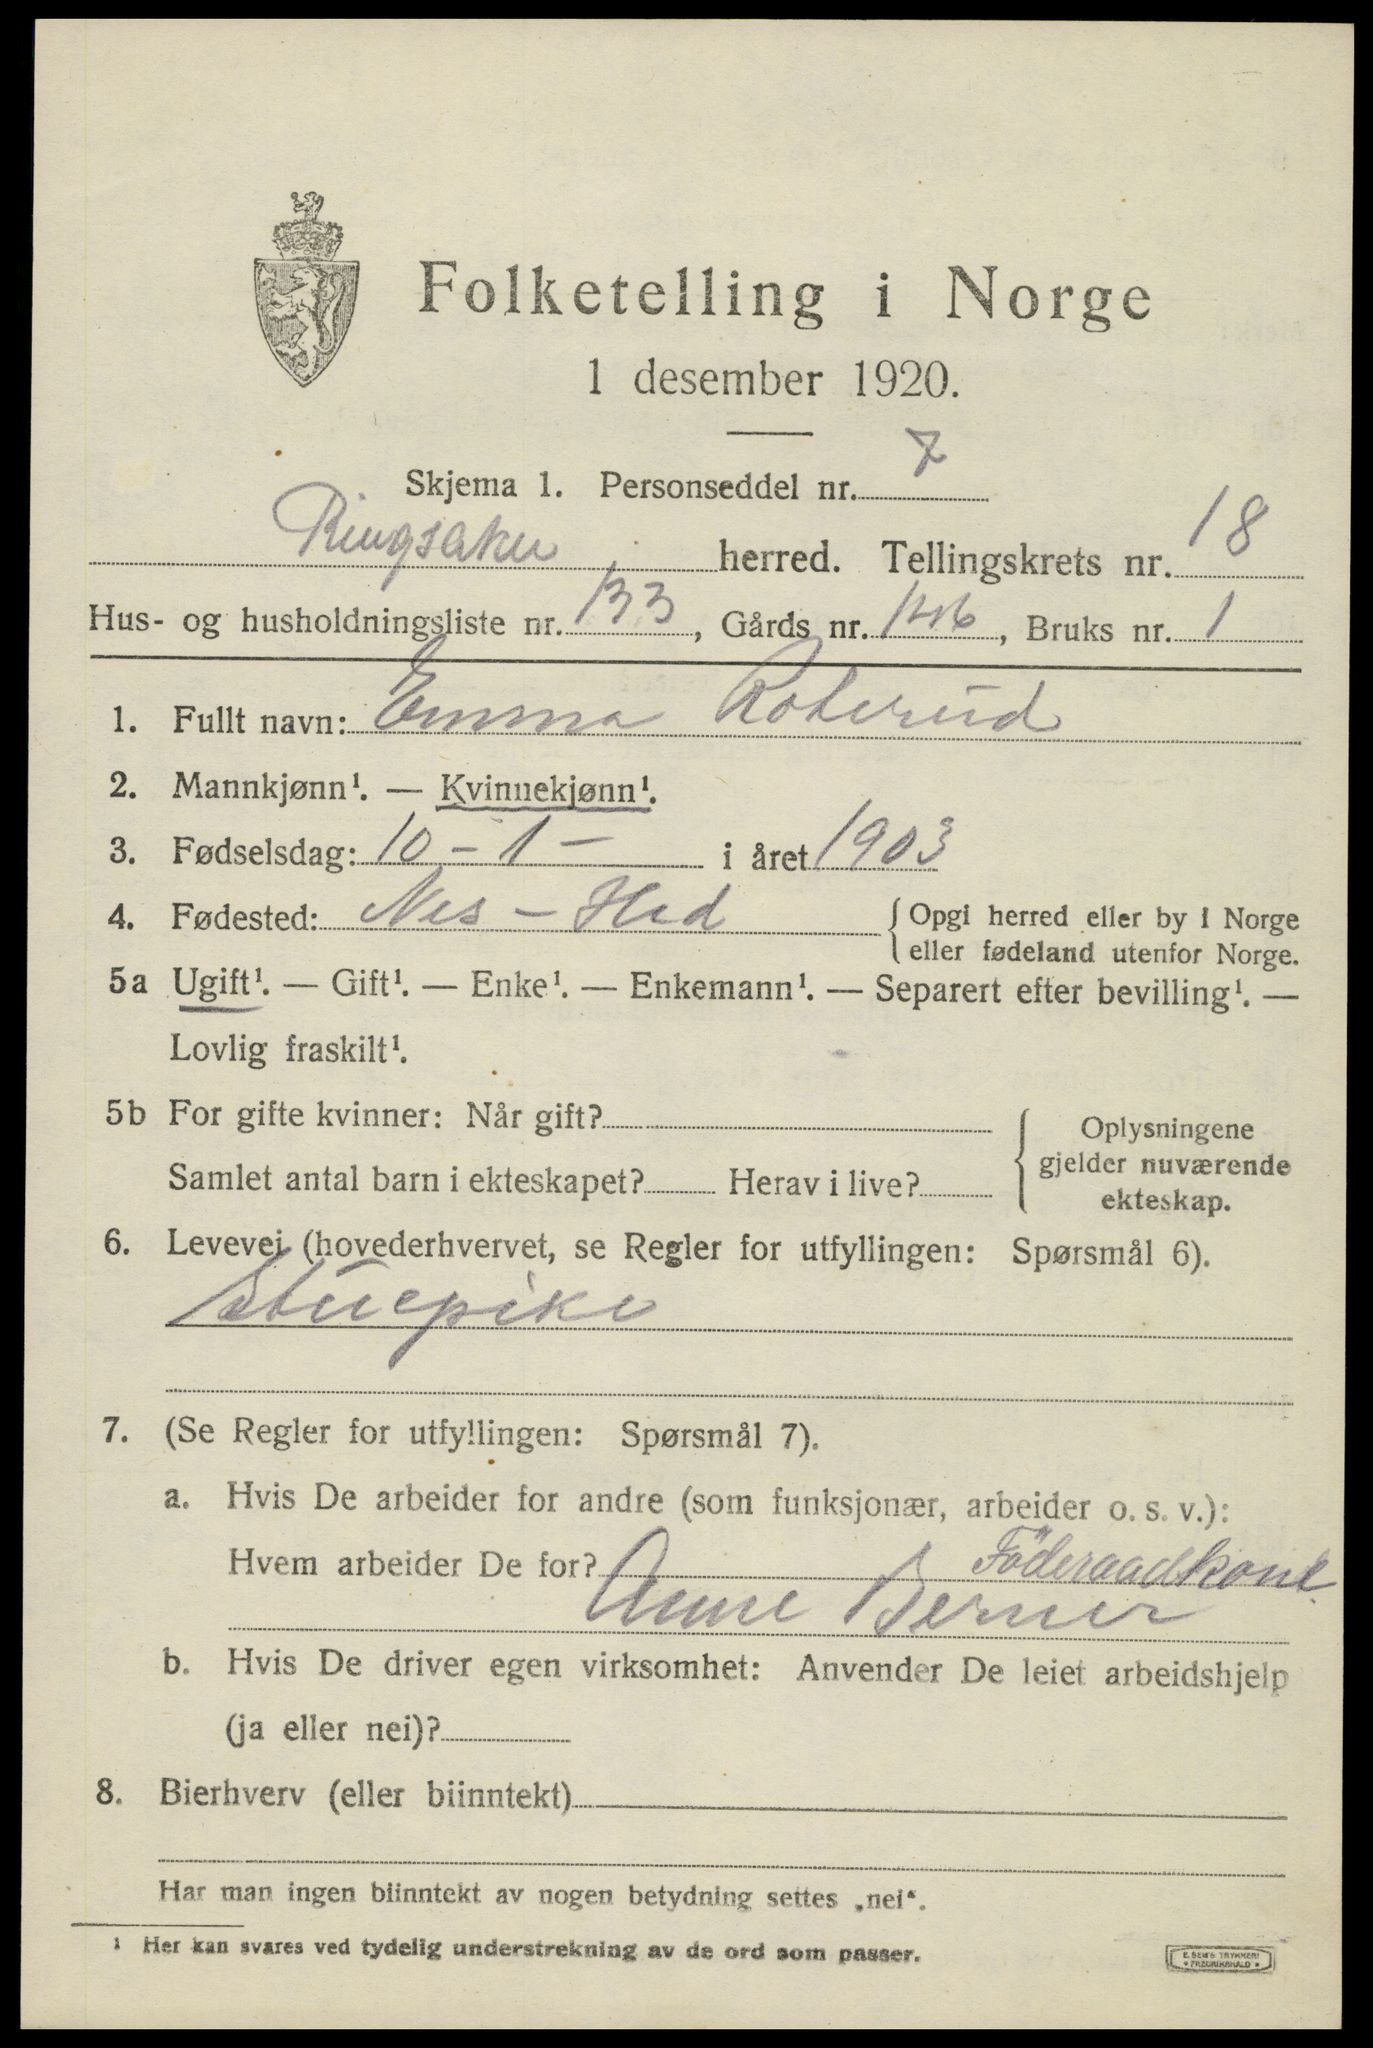 Folketelling i Norge
1 desember 1920.
Skjema 1. Personseddel nr. 7
Ringsaker herred. Tellingskrets nr. 18
Hus- og husholdningsliste nr. 133, Gårds nr. 146, Bruks nr. 1
1. Fullt navn: Emma Roterud
2. Mannkjønn¹. — Kvinnekjønn¹.
3. Fødselsdag: 10 - 1 - i året 1903
4. Fødested: Nes - Hed {Opgi herred eller by i Norge
eller fødeland utenfor Norge.
5a Ugift¹. — Gift¹. — Enke¹. — Enkemann¹. — Separert efter bevilling¹. —
Lovlig fraskilt¹.
5b For gifte kvinner: Når gift? { Oplysningene
gjelder nuværende
Samlet antal barn i ekteskapet? Herav i live?
ekteskap.
6. Levevei (hovederhvervet, se Regler for utfyllingen: Spørsmål 6).
Stuepike
7. (Se Regler for utfyllingen: Spørsmål 7).
a. Hvis De arbeider for andre (som funksjonær, arbeider o. s. v.):
Hvem arbeider De for? Föderaadkone
Anne Berner
b. Hvis De driver egen virksomhet: Anvender De leiet arbeidshjelp
(ja eller nei)?
8. Bierhverv (eller biinntekt)
Har man ingen biinntekt av nogen betydning settes „nei“.
¹ Her kan svares ved tydelig understrekning av de ord som passer.
E. SEM'S TRYKKERI
• FREDRIKSHALD •